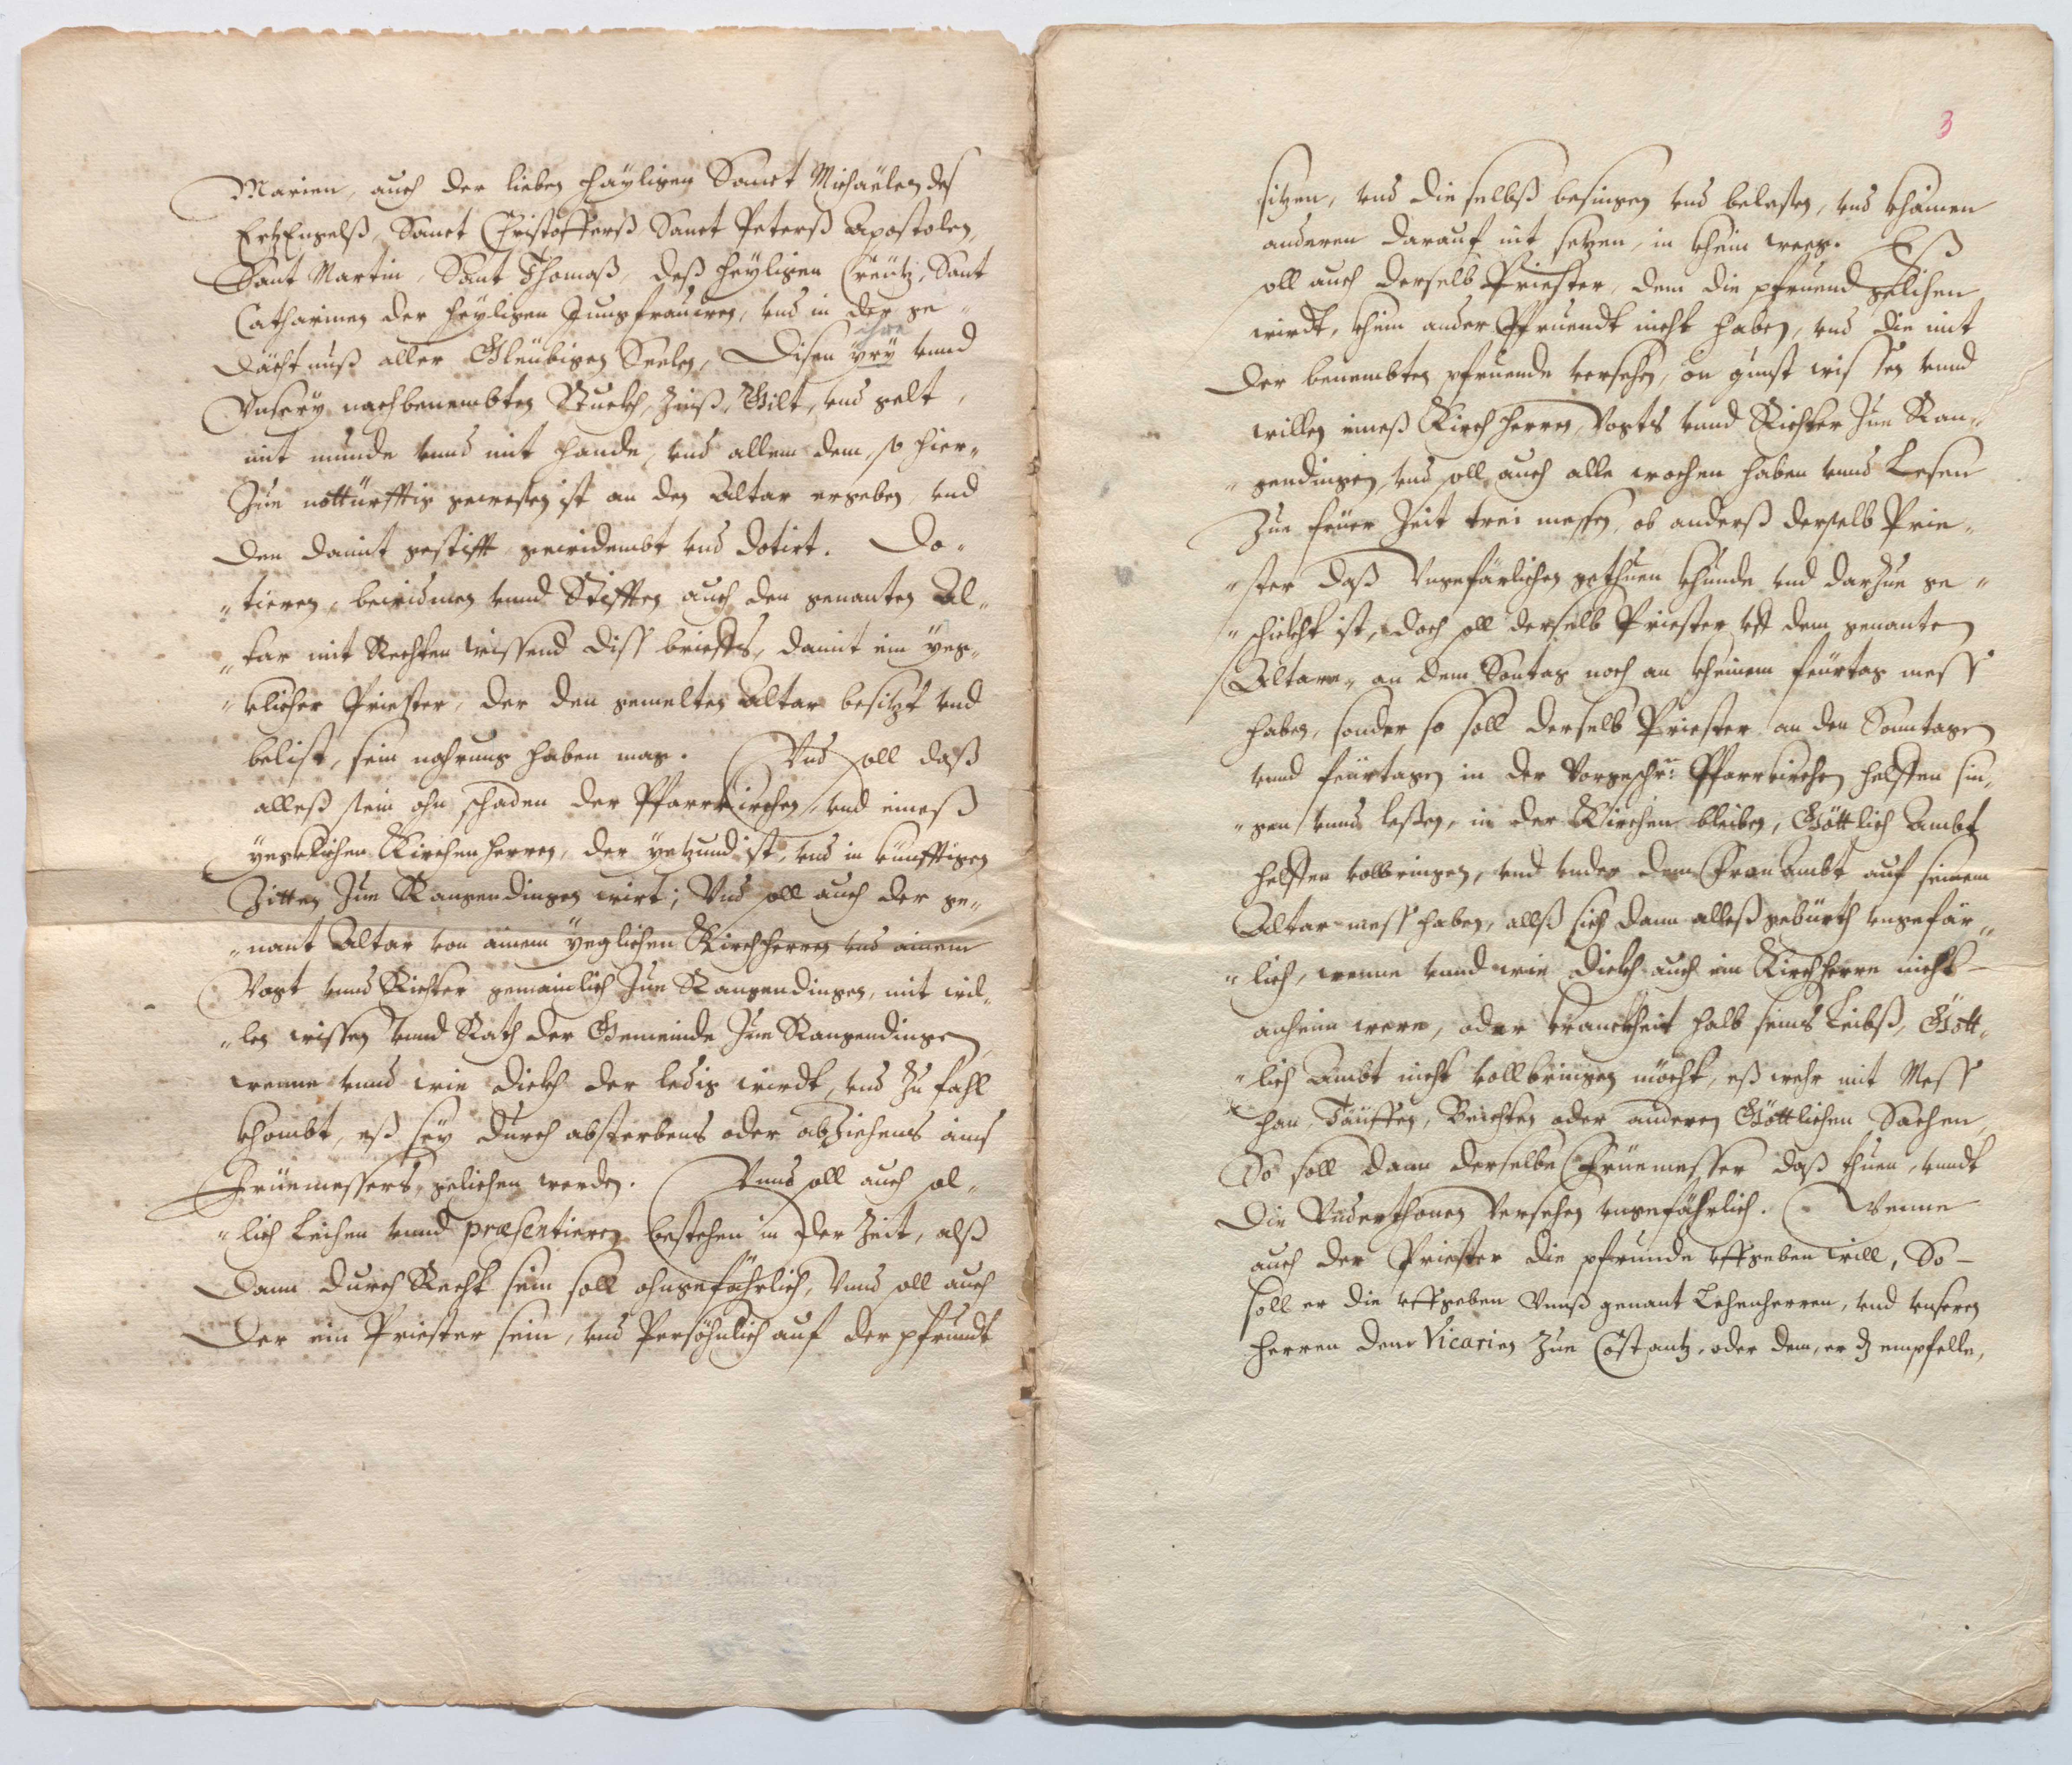 Marien, auch der lieben Häyligen Sanct Michaëlen des
ErtzEngelß, Sanct Christofferß Sanct Peterß Apostolen,
Sant Martin, Sant Thomaß, deß Heyligen Creütz, Sant
Catharinen der Heyligen Jungfrauwen, vnd in der ge-
ihre
dächtnuß aller Gleubigen Seelen, Disen yry vnnd
Vnsery nachbenembten Stuckh, Zinß, Gilt, vnd gelt,
mit munde vnnd mit hande, vnd allem dem, so hier-
Zue nottürfftig gewesen ist an den Altar ergeben, vnd
den damit gestifft gewidembt vnd dotirt. Do-
"tieren, bewidmen vnnd Stifften auch den genanten Al-
"tar mit Rechten wissend diss brieffs, damit ein yeg-
"klicher Priester, der den gemelten Altar besitzt vnd
belist, sein nahrung haben mag. Vnd soll daß
alleß sein ohn schaden der Pfarrkirchen, vnd eineß
yegklichen Kirchenherren, der yetzund ist, vnd in künfftigen
Zitten Zue Rangendingen wirt; Vnd soll auch der ge-
"nant Altar von ainem yeglichen Kirchherren vnd ainem
Vogt vnnd Richter gemainlich Zue Rangendingen, mit wil-
"len wissen vnnd Rath der Gemeinde Zue Rangendingen,
wenne vnnd wie dickh der ledig wirdt, vnd Zu fahl
khombt, eß sey durch absterbens oder abziehens ains
Früemessers, gelichen werden. Vnnd soll auch sol-
"lich Leichen vnnd præsentieren bestehen in der Zeit, alß
dann durch Recht sein soll ohngefährlich, Vnnd soll auch
der ein Priester sein, vnd Persöhnlich auf der pfrundt
3
sitzen, vnd die selbß besingen vnd belesen, vnd khainen
anderen darauf nit setzen, in khein weeg. Eß
soll auch derselb Priester, dem die pfruend gelichen
wirdt, khein ander Pfruendt nicht haben, vnd die mit
der benembten pfruende versehen, on gunst wissen vnnd
willen eineß Kirchherren, Vogts vnnd Richter Zue Ran-
"gendingen, vnd soll auch alle wochen haben vnnd Lesen
Zue früer Zeit trei messen, ob anderß derselb Prie-
"ster daß Vngefärlichen gethuen khünde vnd darZue ge-
"schickht ist, doch soll derselb Priester vff dem genanten
Altare, an dem Sontag noch an kheinem feürtag mess
haben, sonder so soll derselb Priester an den Sonntagen
vnnd feürtagen in der Vorgeschr: Pfarrkirchen helffen sin-
"gen vnnd lesen, in der Kirchen bleiben, Göttlich Ambt
helffen vollbringen, vnd vnder dem Fron Ambt auf seinem
Altar mess haben, allß sich dann alleß gebürth vngefär-
"lich, wenne vnnd wie dickh auch ein Kirchherre nicht-
anheim were, oder kranckheit halb seins Leibß, Gött-
"lich Ambt nicht vollbringen möcht, eß wehr mit Mess
han, Täuffen, Beichten oder anderen Göttlichen Sachen,
So soll dann derselbe Früemesser daß thuen, vnndt
die Vnderthonen Versehen vngefährlich. Wenne
auch der Priester die pfrunde vffgeben will, So-
soll er die vffgeben Vnnß genant Lehenherren, vnd vnseren
Herren dem Vicarien Zue Costantz, oder dem, er dz empfelle,